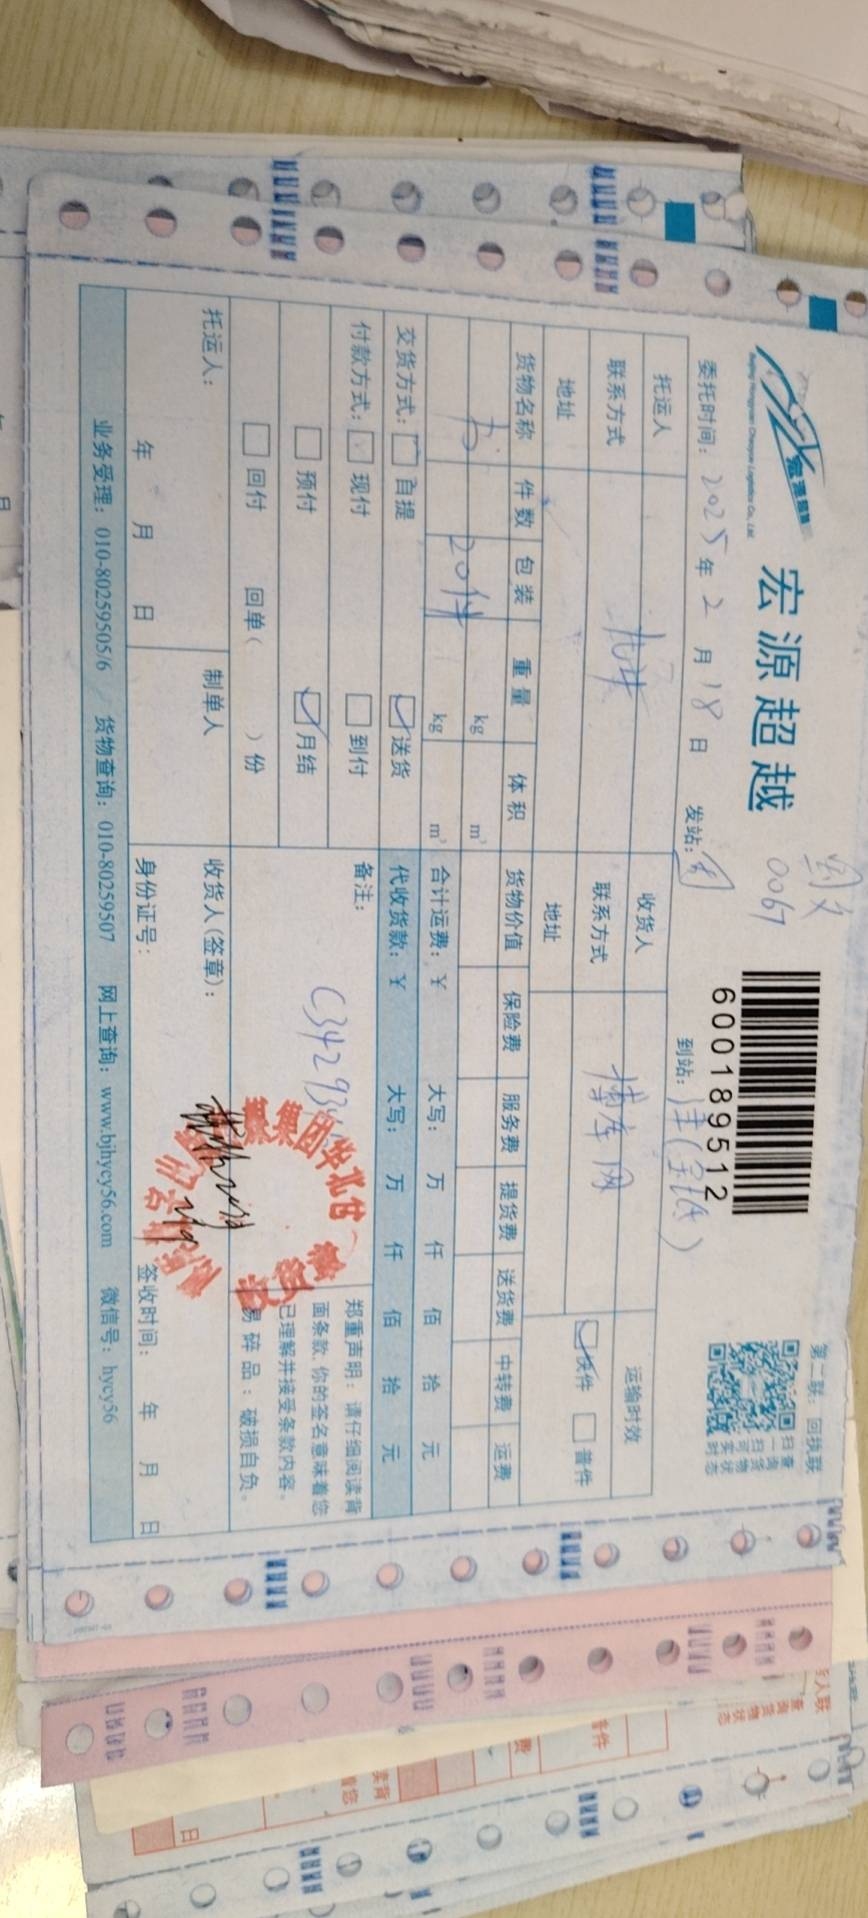 宏源超越
Beijing Hongyuan Chaoyue Logistics Co., Ltd.
宏源超越
0067
6000189512
第二联：回执联
扫查
一询
扫货
可物
实状
时态
委托时间：2025年2月18日 发站： 到站：
托运人 收货人 运输时效
联系方式 联系方式 博库网 快件 普件
地址 地址
货物名称 件数 包装 重量 体积 货物价值 保险费 服务费 提货费 送货费 中转费 运费
kg m³
20件 kg m³ 合计运费：¥ 大写： 万 仟 佰 拾 元
交货方式： 自提 送货 代收货款：¥ 大写： 万 仟 佰 拾 元
付款方式： 现付 到付 备注：
预付 月结
回付 回单( )份
郑重声明：请仔细阅读背
面条款，你的签名意味着您
已理解并接受条款内容。
易碎品：破损自负。
集团华北
托运人： 制单人 收货人(签章)：
年 月 日 身份证号： 签收时间： 年 月 日
业务受理：010-80259505/6 货物查询：010-80259507 网上查询：www.bjhycy56.com 微信号：hycy56